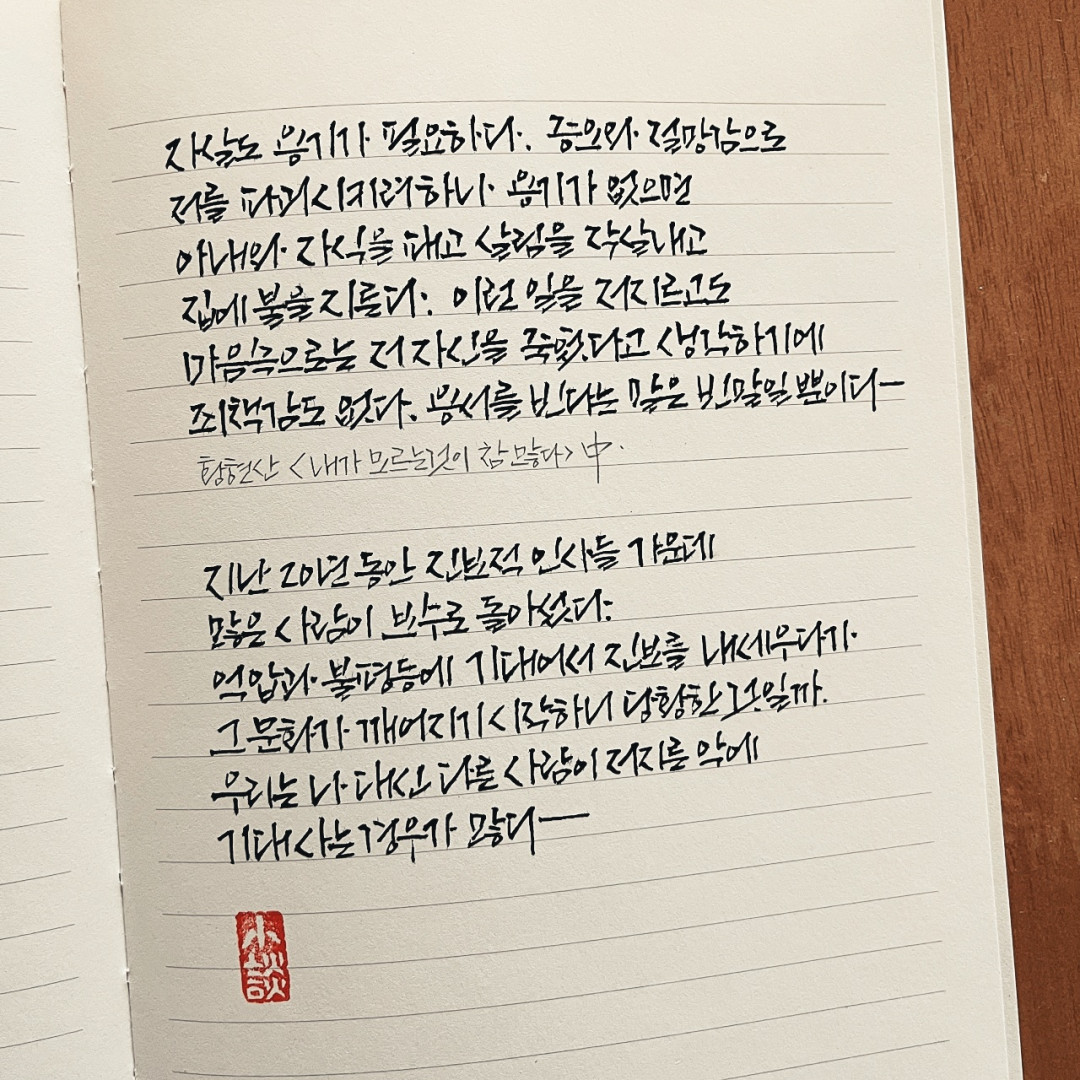 자살도 용기가 필요하다. 증오와 절망감으로
저를 파괴시키려하니 용기가 없으면
아내와 자식을 패고 살림을 작살내고
집에 불을 지른다. 이런 일을 저지르고도
마음속으로는 저 자신을 죽였다고 생각하기에
죄책감도 없다. 용서를 빈다는 말은 빈말일 뿐이다—
황현산 <내가 모르는것이 참 많다> 中.
지난 20년 동안 진보적 인사들 가운데
많은 사람이 보수로 돌아섰다.
억압과 불평등에 기대어서 진보를 내세우다가
그 문화가 깨어지기 시작하니 당황한 것일까.
우리는 나 대신 다른 사람이 저지른 악에
기대 사는 경우가 많다—
小談